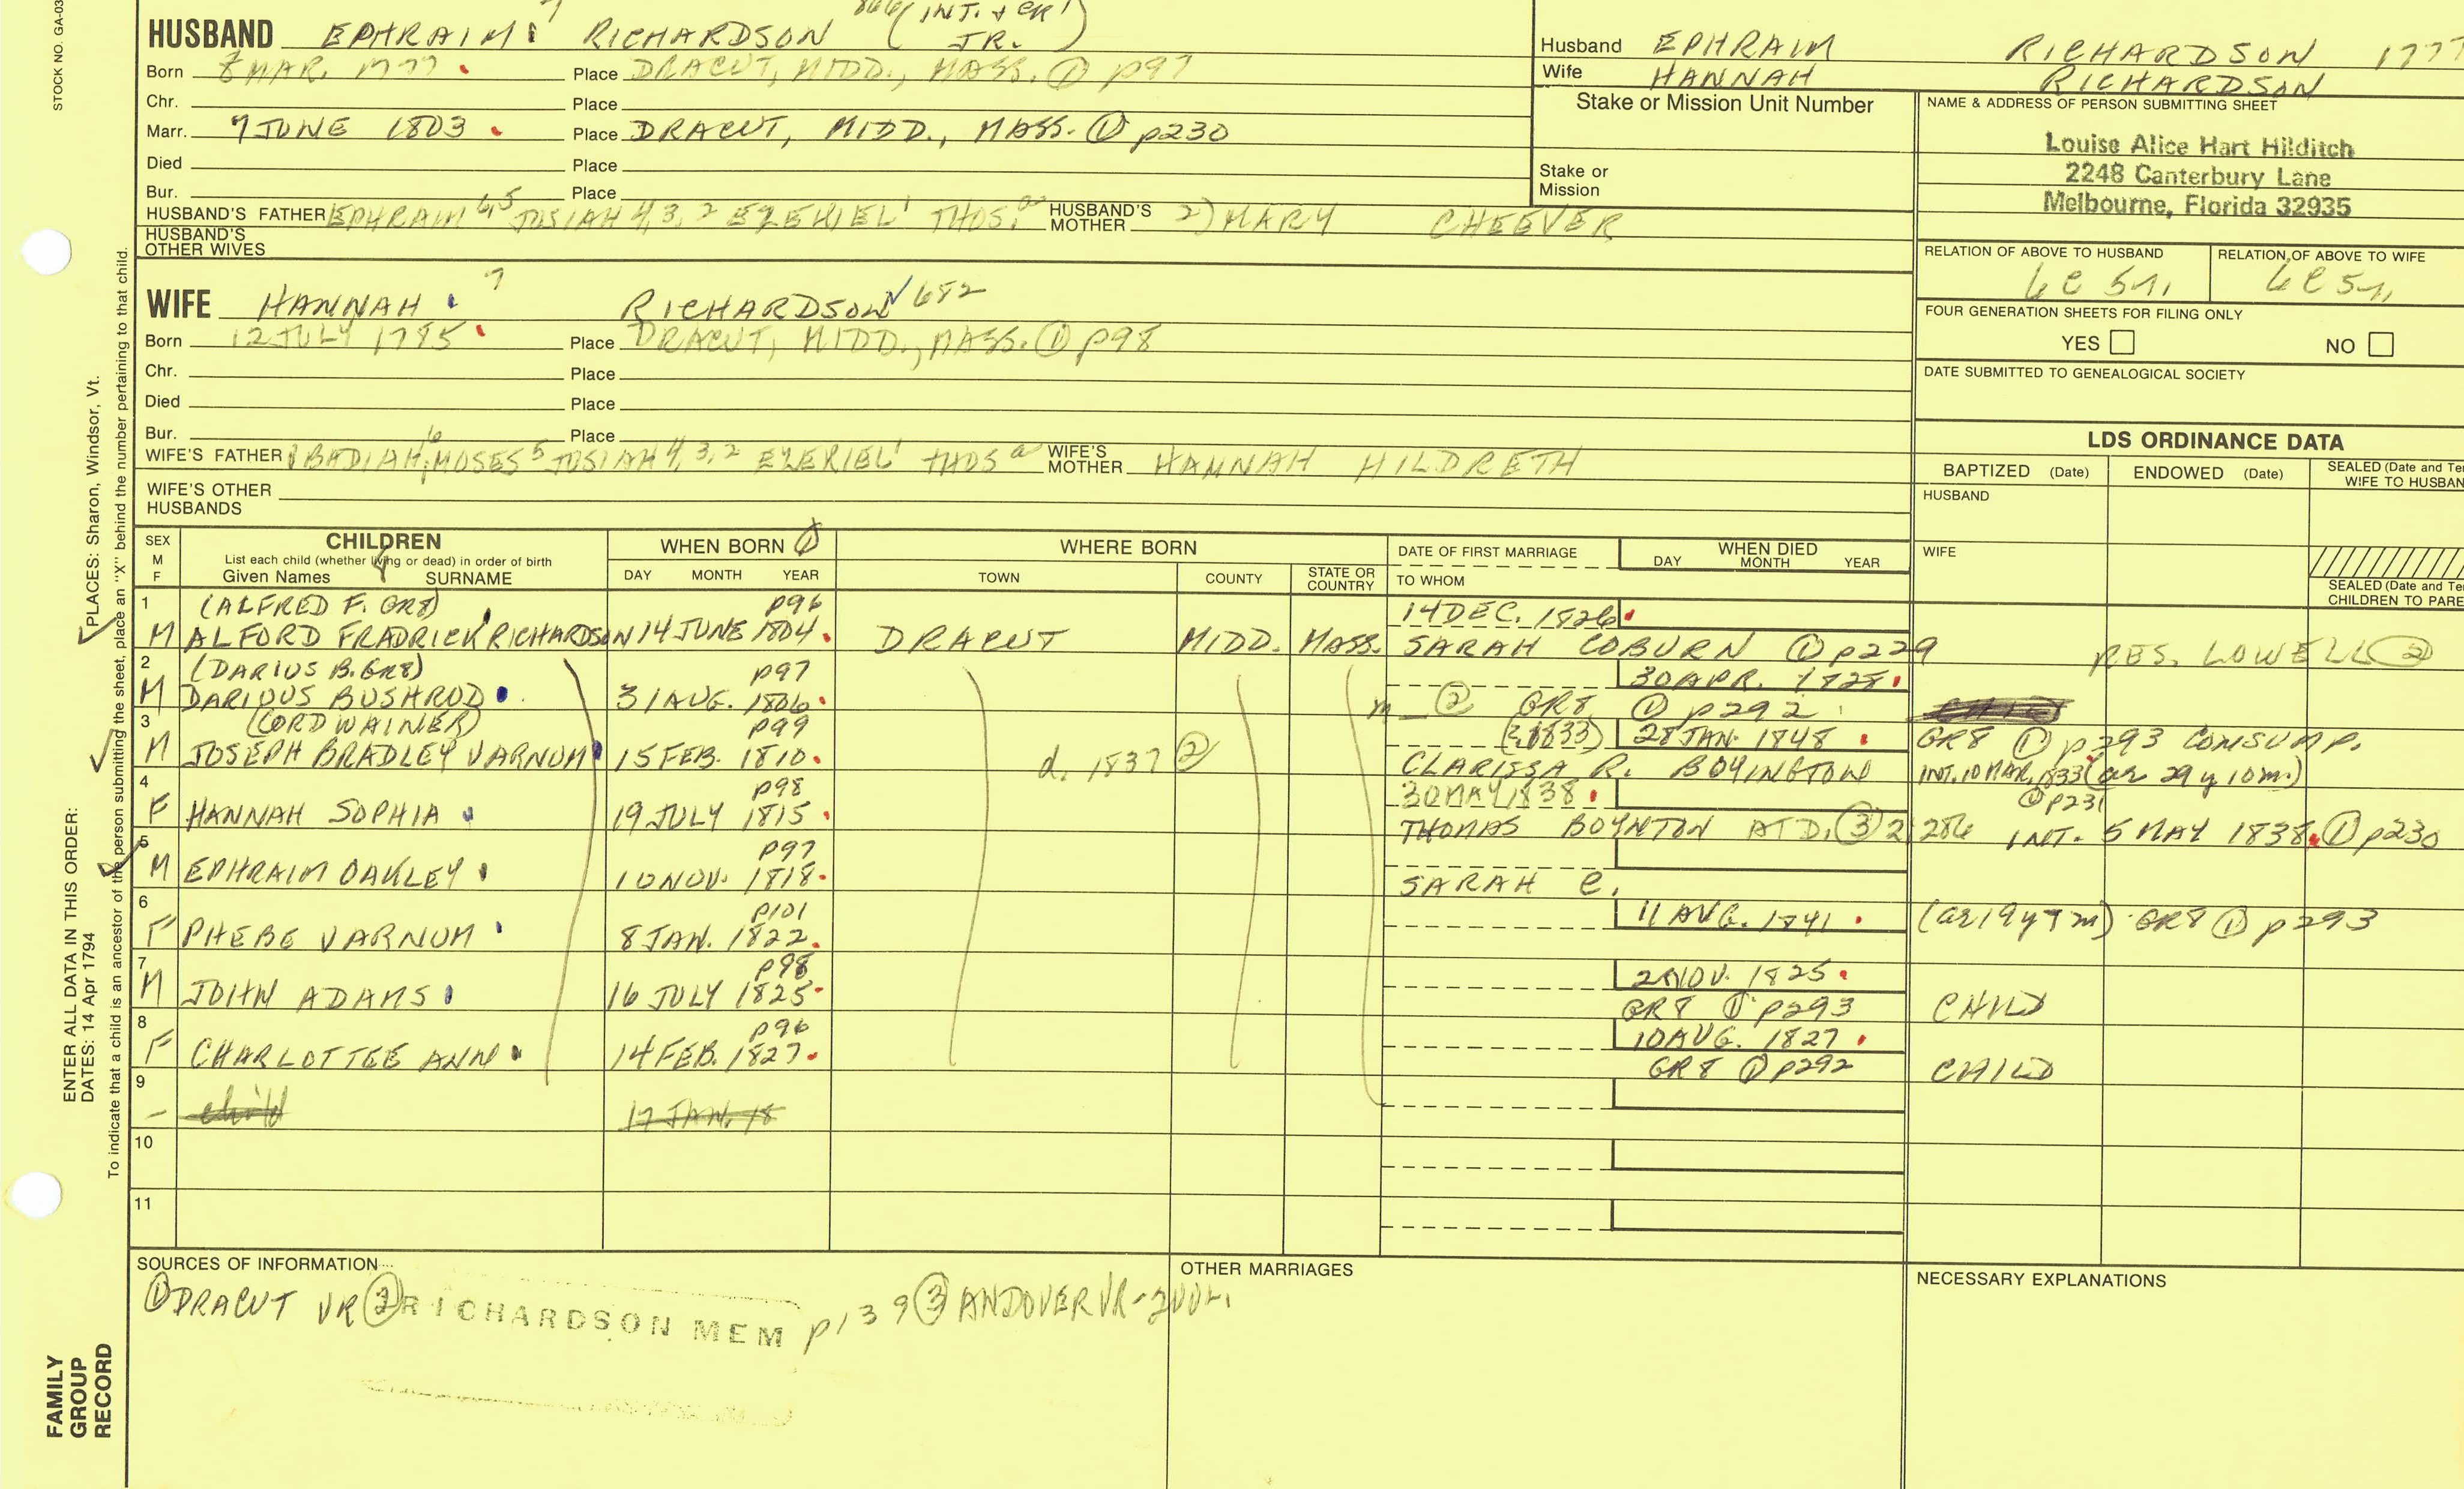 STOCK NO. GA-03
HUSBAND EPHRAIM 7 RICHARDSON 866 (INT. & GR1) JR.
Born 8 MAR. 1777. Place DRACUT, MIDD., MASS. ① p97
Chr. Place
Marr. 7 JUNE 1803. Place DRACUT, MIDD., MASS. ① p230
Died Place
Bur. Place
HUSBAND'S FATHER EPHRAIM 6,5 JOSIAH 4,3,2 EZEKIEL 1 THOS. a HUSBAND'S MOTHER 2) MARY CHEEVER
HUSBAND'S OTHER WIVES
WIFE HANNAH 7 RICHARDSON √682
Born 12 JULY 1785. Place DRACUT, MIDD., MASS. ① p98
Chr. Place
Died Place
Bur. Place
WIFE'S FATHER OBADIAH 6, MOSES 5 JOSIAH 4,3,2 EZEKIEL 1 THOS a WIFE'S MOTHER HANNAH HILDRETH
WIFE'S OTHER HUSBANDS
Husband EPHRAIM RICHARDSON 1777
Wife HANNAH RICHARDSON
Stake or Mission Unit Number
Stake or
Mission
NAME & ADDRESS OF PERSON SUBMITTING SHEET
Louise Alice Hart Hilditch
2248 Canterbury Lane
Melbourne, Florida 32935
RELATION OF ABOVE TO HUSBAND RELATION OF ABOVE TO WIFE
FOUR GENERATION SHEETS FOR FILING ONLY
YES NO
DATE SUBMITTED TO GENEALOGICAL SOCIETY
LDS ORDINANCE DATA
BAPTIZED (Date) ENDOWED (Date) SEALED (Date and Te
WIFE TO HUSBAN
HUSBAND
WIFE
SEALED (Date and Te
CHILDREN TO PARE
SEX M F
CHILDREN
List each child (whether living or dead) in order of birth
Given Names SURNAME
WHEN BORN ①
DAY MONTH YEAR
WHERE BORN
TOWN COUNTY STATE OR COUNTRY
DATE OF FIRST MARRIAGE
TO WHOM
WHEN DIED
DAY MONTH YEAR
1 (ALFRED F. GR8) p96 14 DEC. 1826.
M ALFORD FRADRICK RICHARDSON 14 JUNE 1804. DRACUT MIDD. MASS. SARAH COBURN ① p229 RES. LOWELL ②
2 (DARIUS B. GR8) p97 30 APR. 1828.
M DARIOUS BUSHROD 31 AUG. 1806. m ② GR8 ① p292
3 (CORDWAINER) p99 (1833) 28 JAN. 1848. GR8 ① p293 CONSUMP.
M JOSEPH BRADLEY VARNUM 15 FEB. 1810. d. 1837 ② CLARISSA R. BOYINGTON INT. 10 MAR. 1833 (ae 29 y 10 m.) ① p231
4 p98 30 MAY 1838.
F HANNAH SOPHIA 19 JULY 1815. THOMAS BOYNTON AT D. ③ 2,286 INT. 5 MAY 1838. ① p230
5 p97
M EPHRAIM OAKLEY 10 NOV. 1818. SARAH E.
6 p101 11 AUG. 1841. (ae 19 y 7 m) GR8 ① p293
F PHEBE VARNUM 8 JAN. 1822.
7 p98 2 NOV. 1825.
M JOHN ADAMS 16 JULY 1825. GR8 ① p293 CHILD
8 p96 10 AUG. 1827.
F CHARLOTTEE ANN 14 FEB. 1827. GR8 ① p292 CHILD
9
- child 17 JAN. 18
10
11
SOURCES OF INFORMATION
① DRACUT VR ② RICHARDSON MEM p139 ③ ANDOVER VR-2
OTHER MARRIAGES
NECESSARY EXPLANATIONS
PLACES: Sharon, Windsor, Vt.
ENTER ALL DATA IN THIS ORDER:
DATES: 14 Apr 1794
To indicate that a child is an ancestor of the person submitting the sheet, place an "X" behind the number pertaining to that child.
FAMILY
GROUP
RECORD